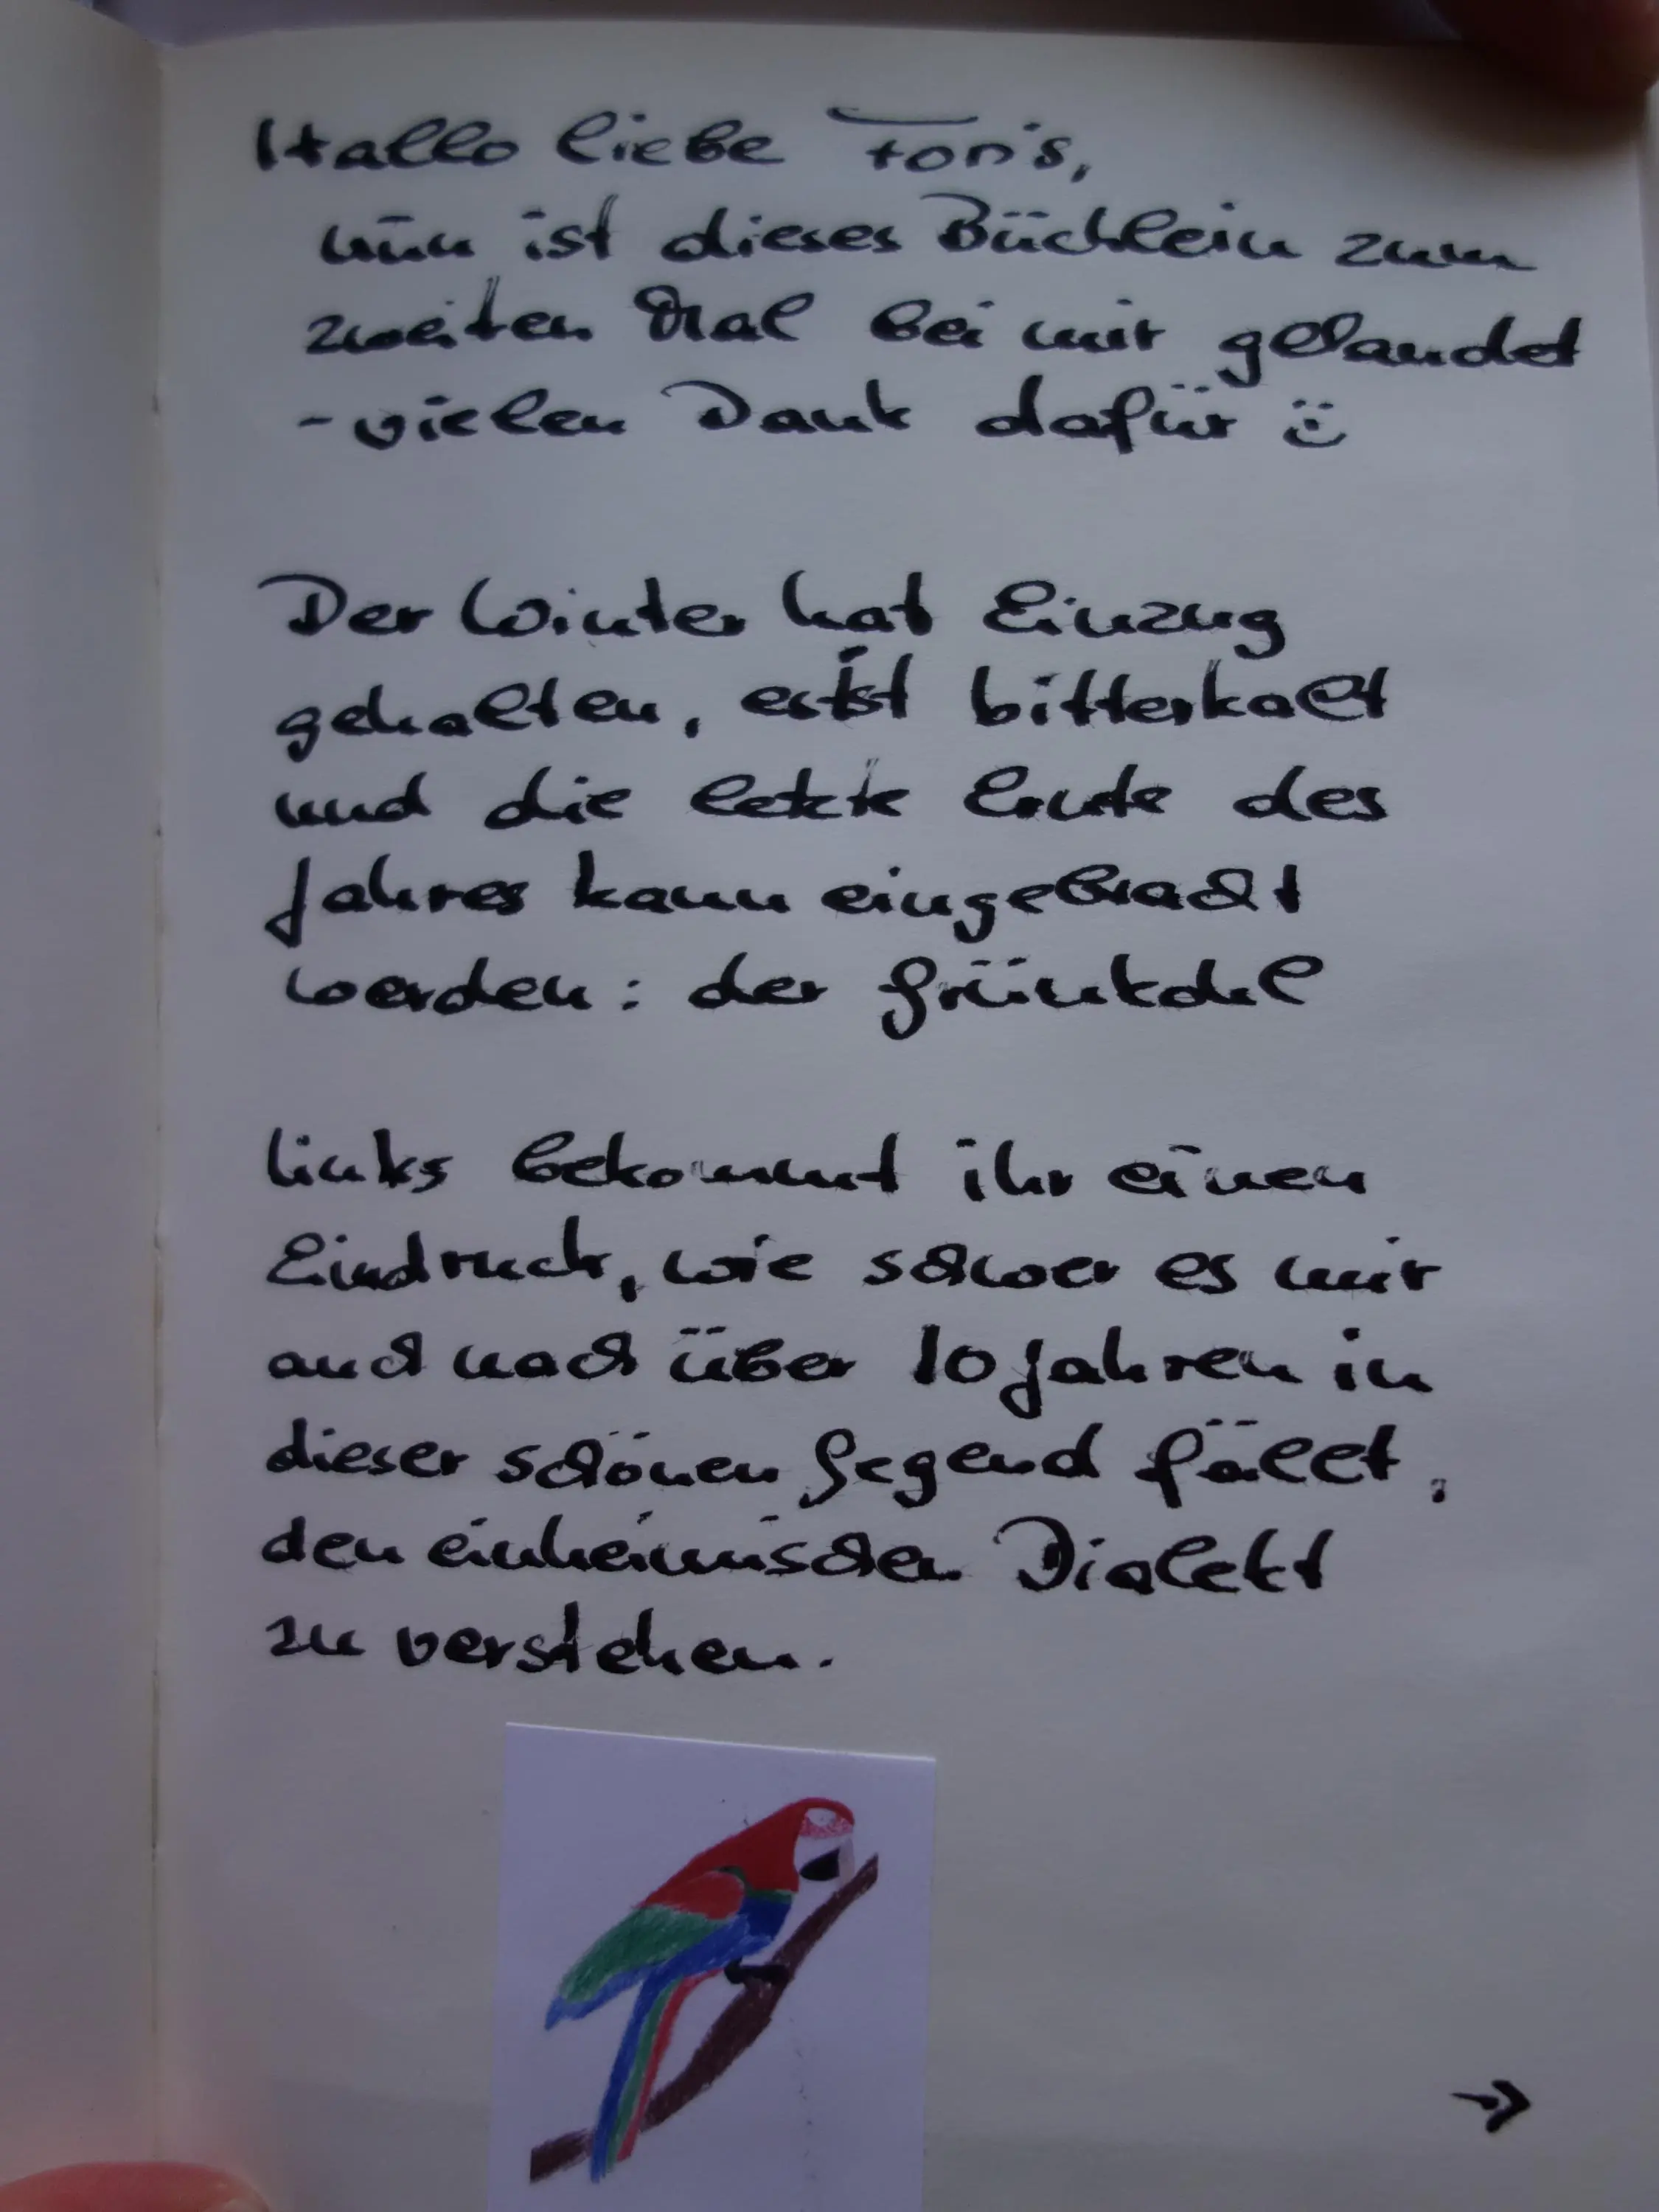 Hallo liebe Foris,
nun ist dieses Büchlein zum
zweiten Mal bei mir gelandet
- vielen Dank dafür ☺
Der Winter hat Einzug
gehalten, es ist bitterkalt
und die letzte Ernte des
Jahres kann eingebracht
werden: der Grünkohl
Links bekommt ihr einen
Eindruck, wie schwer es mir
auch nach über 10 Jahren in
dieser schönen Gegend fällt,
den einheimischen Dialekt
zu verstehen.
→